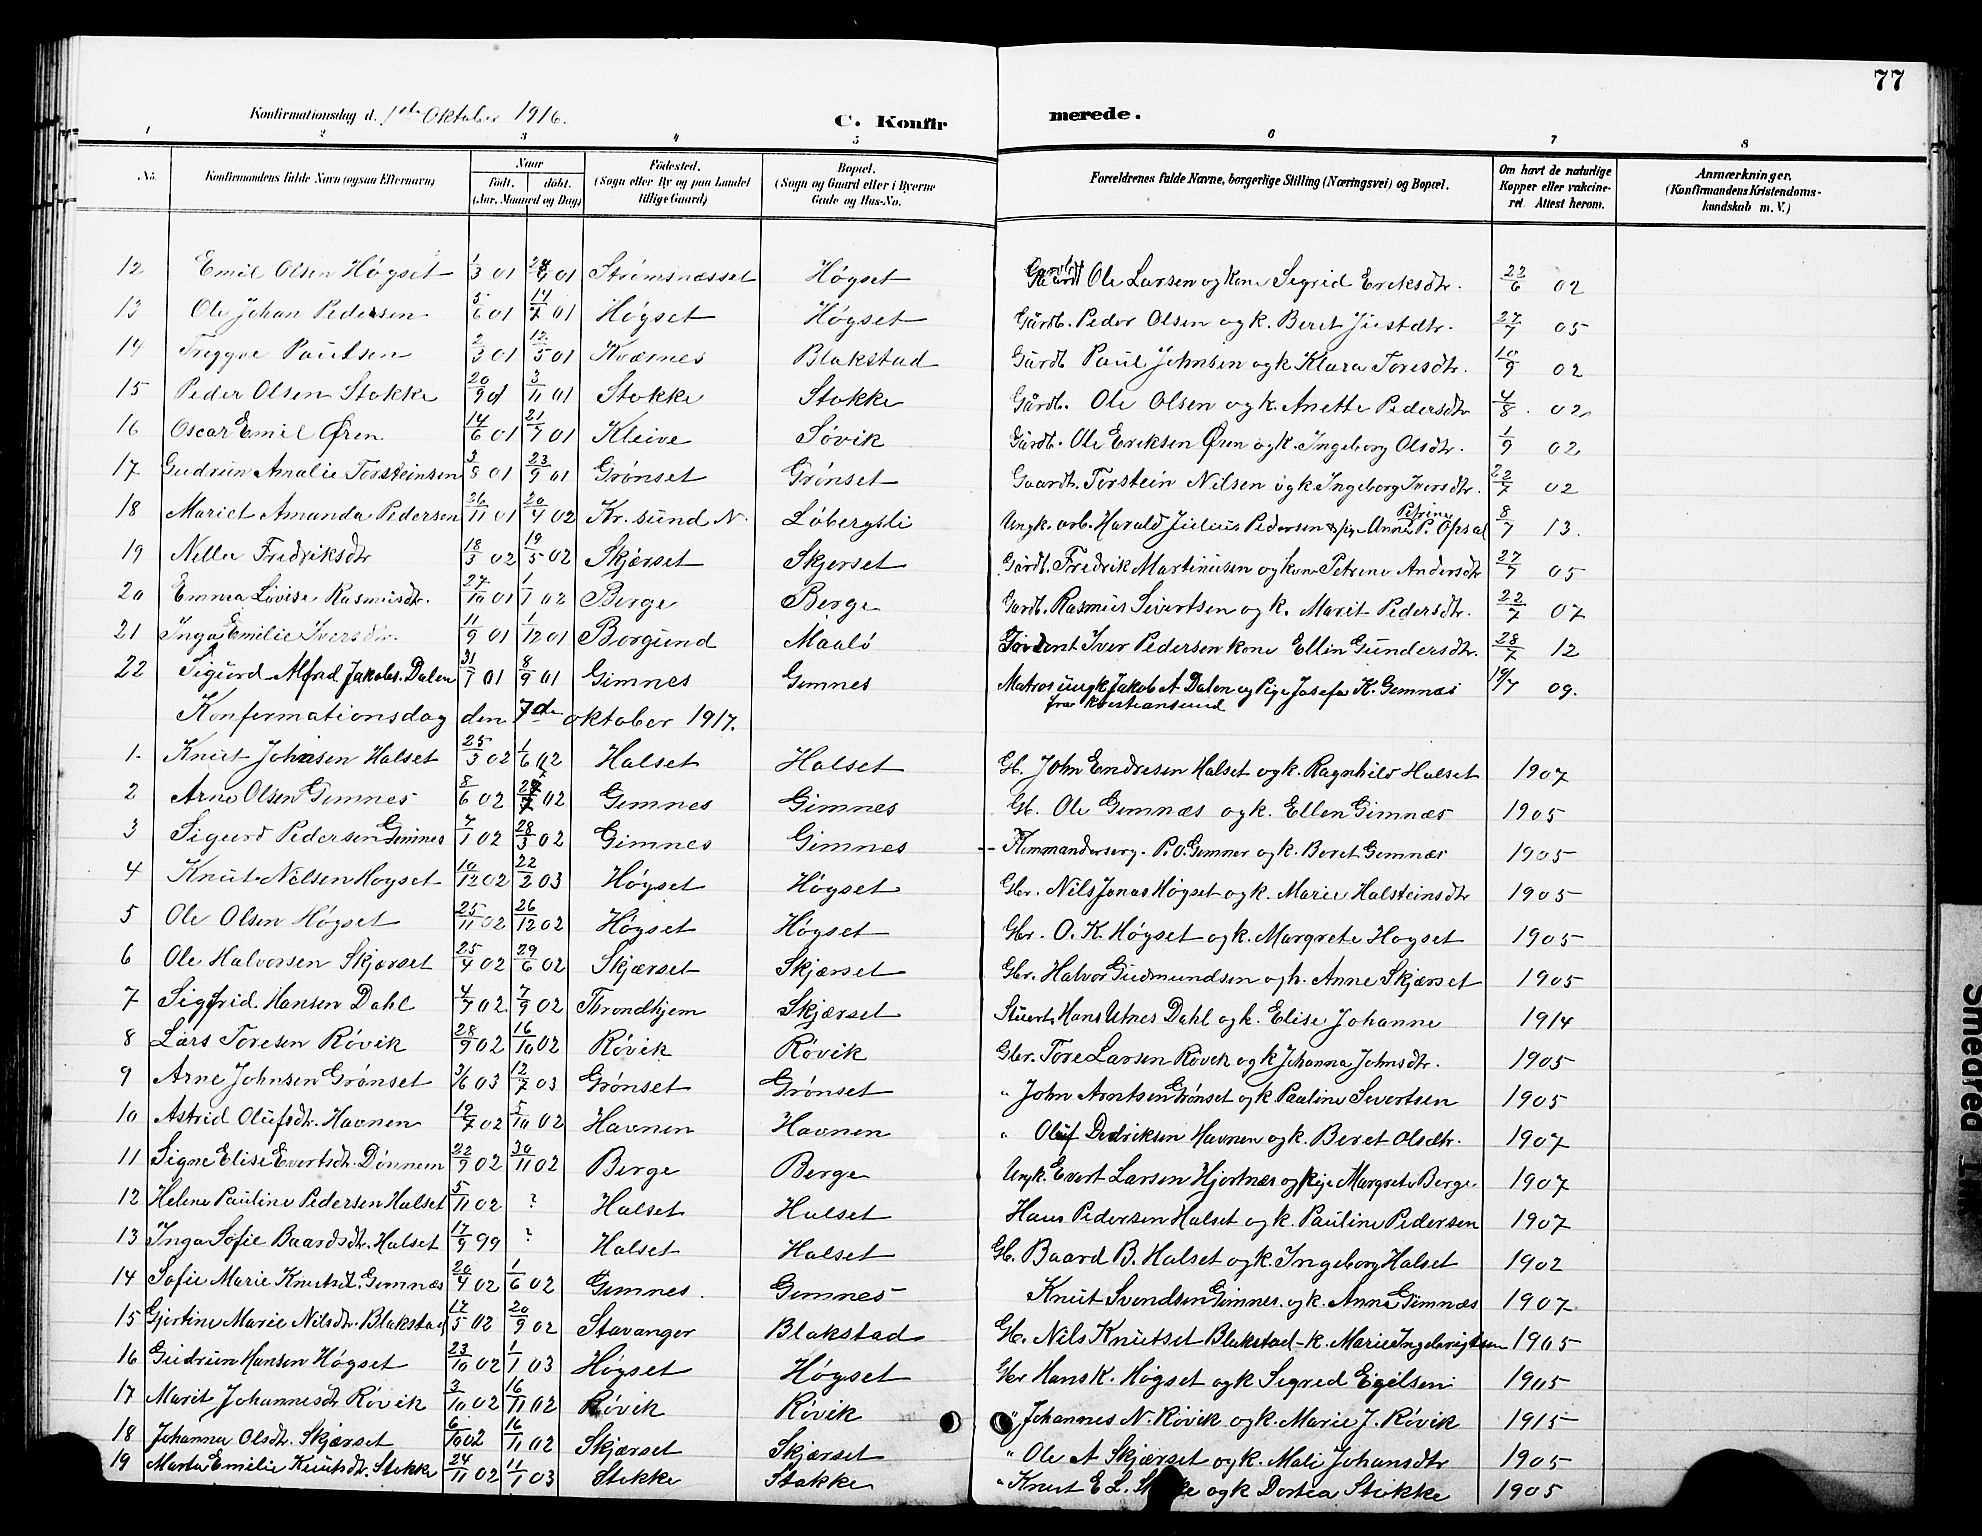 77
Konfirmationsdag d. 1ste Oktober 1916.
C. Konfirmerede.
1 2 3 4 5 6 7 8
No. Konfirmandens fulde Navn (ogsaa Efternavn) Naar født. døbt. (Aar, Maaned og Dag) Fødested. (Sogn eller By og paa Landet tillige Gaard) Bopæl. (Sogn og Gaard eller i Byerne Gade og Hus-No. Forældrenes fulde Navne, borgerlige Stilling (Næringsvei) og Bopæl. Om havt de naturlige Kopper eller vakcineret. Attest herom. Anmærkninger. (Konfirmandens Kristendomskundskab m. V.)
12 Emil Olsen Høgset 1/3 01 /4 01 Strømsnæsset Høgset Ole Larsen og kone Sigrid Eriksdtr. 22/6 02
13 Ole Johan Pedersen 5/6 01 14/7 01 Høgset Høgset Gårdb. Peder Olsen og k. Beret Justdtr. 27/7 05
14 Tryggve Paulsen 2/3 01 12/5 01 Kværnes Blakstad Gårdb. Paul Johnsen og k Klara Toresdtr. 10/9 02
15 Peder Olsen Stokke 20/9 01 3/11 01 Stokke Stokke Gårdb. Ole Olsen og k. Anette Pedersdtr 4/8 02
16 Oscar Emil Øren 14/6 01 21/7 01 Kleive Søvik Gårdb. Ole Eriksen Øren og k. Ingeborg Olsdtr. 1/9 02
17 Gudrun Amalie Torsteinsen 3/8 01 23/9 01 Grønset Grønset Gaardb. Torstein Nilsen og k. Ingeborg Iversdtr. 22/7 02
18 Marict Amanda Pedersen 26/11 01 20/4 02 Kr.sund N. Løbergsli Ungk. arb. Harald Julius Pedersen & pige Anne Petrine P. Opsal 8/7 13.
19 Nelle Fredriksdtr 18/3 02 19/5 02 Skjærset Skjerset Gårdb. Fredrik Martinusen og kone Petrine Andersdtr 27/7 05
20 Emma Lovise Rasmusdtr. 27/10 01 1/1 02 Berge Berge Gardb. Rasmus Sivertsen og k. Marit Pedersdtr. 22/7 07
21 Inga Emilie Iversdtr. 11/9 01 1/12 01 Borgund Maalø Iver Pedersen kone Ellin Gundersdtr. 28/7 12
22 Sigurd Alfrid Jakobs. Dalen 31/7 01 8/9 01 Gimnes Gimnes Matros ungk Jakob A Dalen og Pige Josefa K. Gimnæs 19/7 09.
fra Kristiansund
Konfirmationsdag den 7de oktober 1917.
1. Knut Johnsen Halset 25/3 02 1/6 02 Halset Halset Gb. John Endresen Halset og k. Ragnhild Halset 1907
2 Arne Olsen Gimnes 8/6 02 02 Gimnes Gimnes Gb. Ole Gimnæs og k. Ellen Gimnæs 1905
3 Sigurd Pedersen Gimnes 7/1 02 28/3 02 Gimnes Gimnes P. O. Gimnes og k. Beret Gimnæs 1905
4 Knut Nilsen Høgset 10/12 02 22/2 03 Høgset Høgset Gbr. Nils Jonas Høgset og k. Marie Halsteinsdtr 1905
5 Ole Olsen Høgset 25/11 02 26/12 02 Høgset Høgset Gbr. O. K. Høgset og k. Margrete Høgset 1905
6 Ole Halvorsen Skjærset 25/4 02 29/6 02 Skjærset Skjærset Gbr. Halvor Gudmundsen og h. Anne Skjærset 1905
7 Sigfrid Hansen Dahl 4/7 02 7/9 02 Throndhjem Skjærset Stuert Hans Utnes Dahl og k. Elise Johanne 1914
8 Lars Toresen Røvik 28/9 02 16/10 02 Røvik Røvik Gbr. Tore Larsen Røvik og k Johanna Johnsdtr. 1905
9 Arne Johnsen Grønset 3/6 03 12/7 03 Grønset Grønset " John Arntsen Grønset og k Pauline Sivertsen 1905
10 Astrid Olufsdtr. Havnen 19/7 02 5/10 02 Havnen Havnen " Oluf Dedriksen Havnen og k. Beret Olsdtr. 1907
11 Signe Elise Evertsdt. Dønnem 22/9 02 30/11 02 Berge Berge Ungk. Evert Larsen Hjertnæs og pige Margrete Berge 1907
12 Helene Pauline Pedersen Halset 5/11 02 ? Halset Halset Hans Pedersen Halset og k. Pauline Pedersen 1907
13 Inga Sofie Baardsdtr. Halset 17/9 99 ? Halset Halset Gb. Baard B. Halset og k. Ingeborg Halset 1902
14 Sofie Marie Knutsd. Gimnæs 20/4 02 1/6 02 Gimnes. Gimnes Knut Svendsen Gimnes. og k. Anne Gimnæs 1907
15 Gjertine Marie Nilsdtr. Blakstad 17/5 02 20/9 02 Stavanger Blakstad Gb. Nils Knutset Blakstad - k. Marie Ingebrigtsen 1905
16 Gudrun Hansen Høgset 23/10 02 1/1 03 Høgset Høgset Gbr Hans K. Høgset og k Sigrid Egilsen 1905
17 Marit Johannesdt Røvik 3/10 02 16/11 02 Røvik Røvik " Johannes N. Røvik og k. Marie J. Røvik 1915
18 Johanna Olsdtr. Skjærset 6/10 02 16/11 02 Skjærset Skjærset " Ole A Skjærset og k. Mali Johansdtr 1905
19 Marta Emilie Knutsdtr. Stokke 24/11 02 11/1 03 Stokke Stokke " Knut E L. og k Dortea Stokke 1905
Smedred